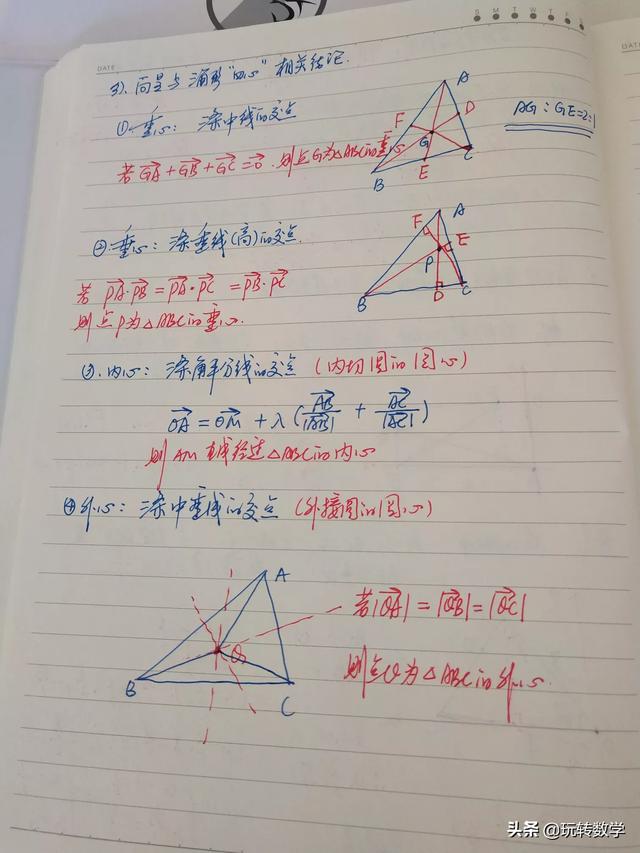 DATE
S M T W T F S
DATE
3). 向量与三角形"四心"相关结论.
①重心: 三条中线的交点
AG : GE = 2:1
若 GA + GB + GC = 0. 则点G为△ABC的重心
A
F
D
G
B
E
C
②垂心: 三条垂线(高)的交点.
若 PA·PB = PA·PC = PB·PC
则点P为△ABC的垂心.
A
F
E
P
B
D
C
③.内心: 三条角平分线的交点 (内切圆的圆心)
OA = OM + λ(AB/|AB| + AC/|AC|)
则 AM 直线经过△ABC的内心
④外心: 三条中垂线的交点 (外接圆的圆心)
A
O
B
C
若|OA| = |OB| = |OC|
则点O为△ABC的外心.
头条 @玩转数学